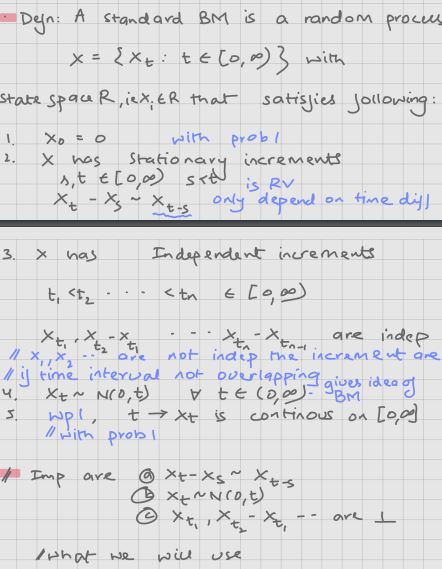 Defn: A standard BM is a random process
X = { X_t : t ∈ [0,∞) } with
state space R, ie X_i ∈ R that satisfies following:
1. X_0 = 0 with prob 1
2. X has stationary increments
s,t ∈ [0,∞) s<t is RV
X_t - X_s ~ X_{t-s} only depend on time diff
3. X has Independent increments
t_1 < t_2 ... < t_n ∈ [0,∞)
X_{t_1}, X_{t_2} - X_{t_1} ... X_{t_n} - X_{t_{n-1}} are indep
// X_1, X_2 --- are not indep the increment are
// if time interval not overlapping
4. X_t ~ N(0,t) ∀ t ∈ (0,∞) - gives idea of BM
5. wp1, t → X_t is continous on [0,∞]
// with prob 1
// Imp are ⓐ X_t - X_s ~ X_{t-s}
ⓑ X_t ~ N(0,t)
ⓒ X_{t_1}, X_{t_2} - X_{t_1} -- are ⊥
/what we will use